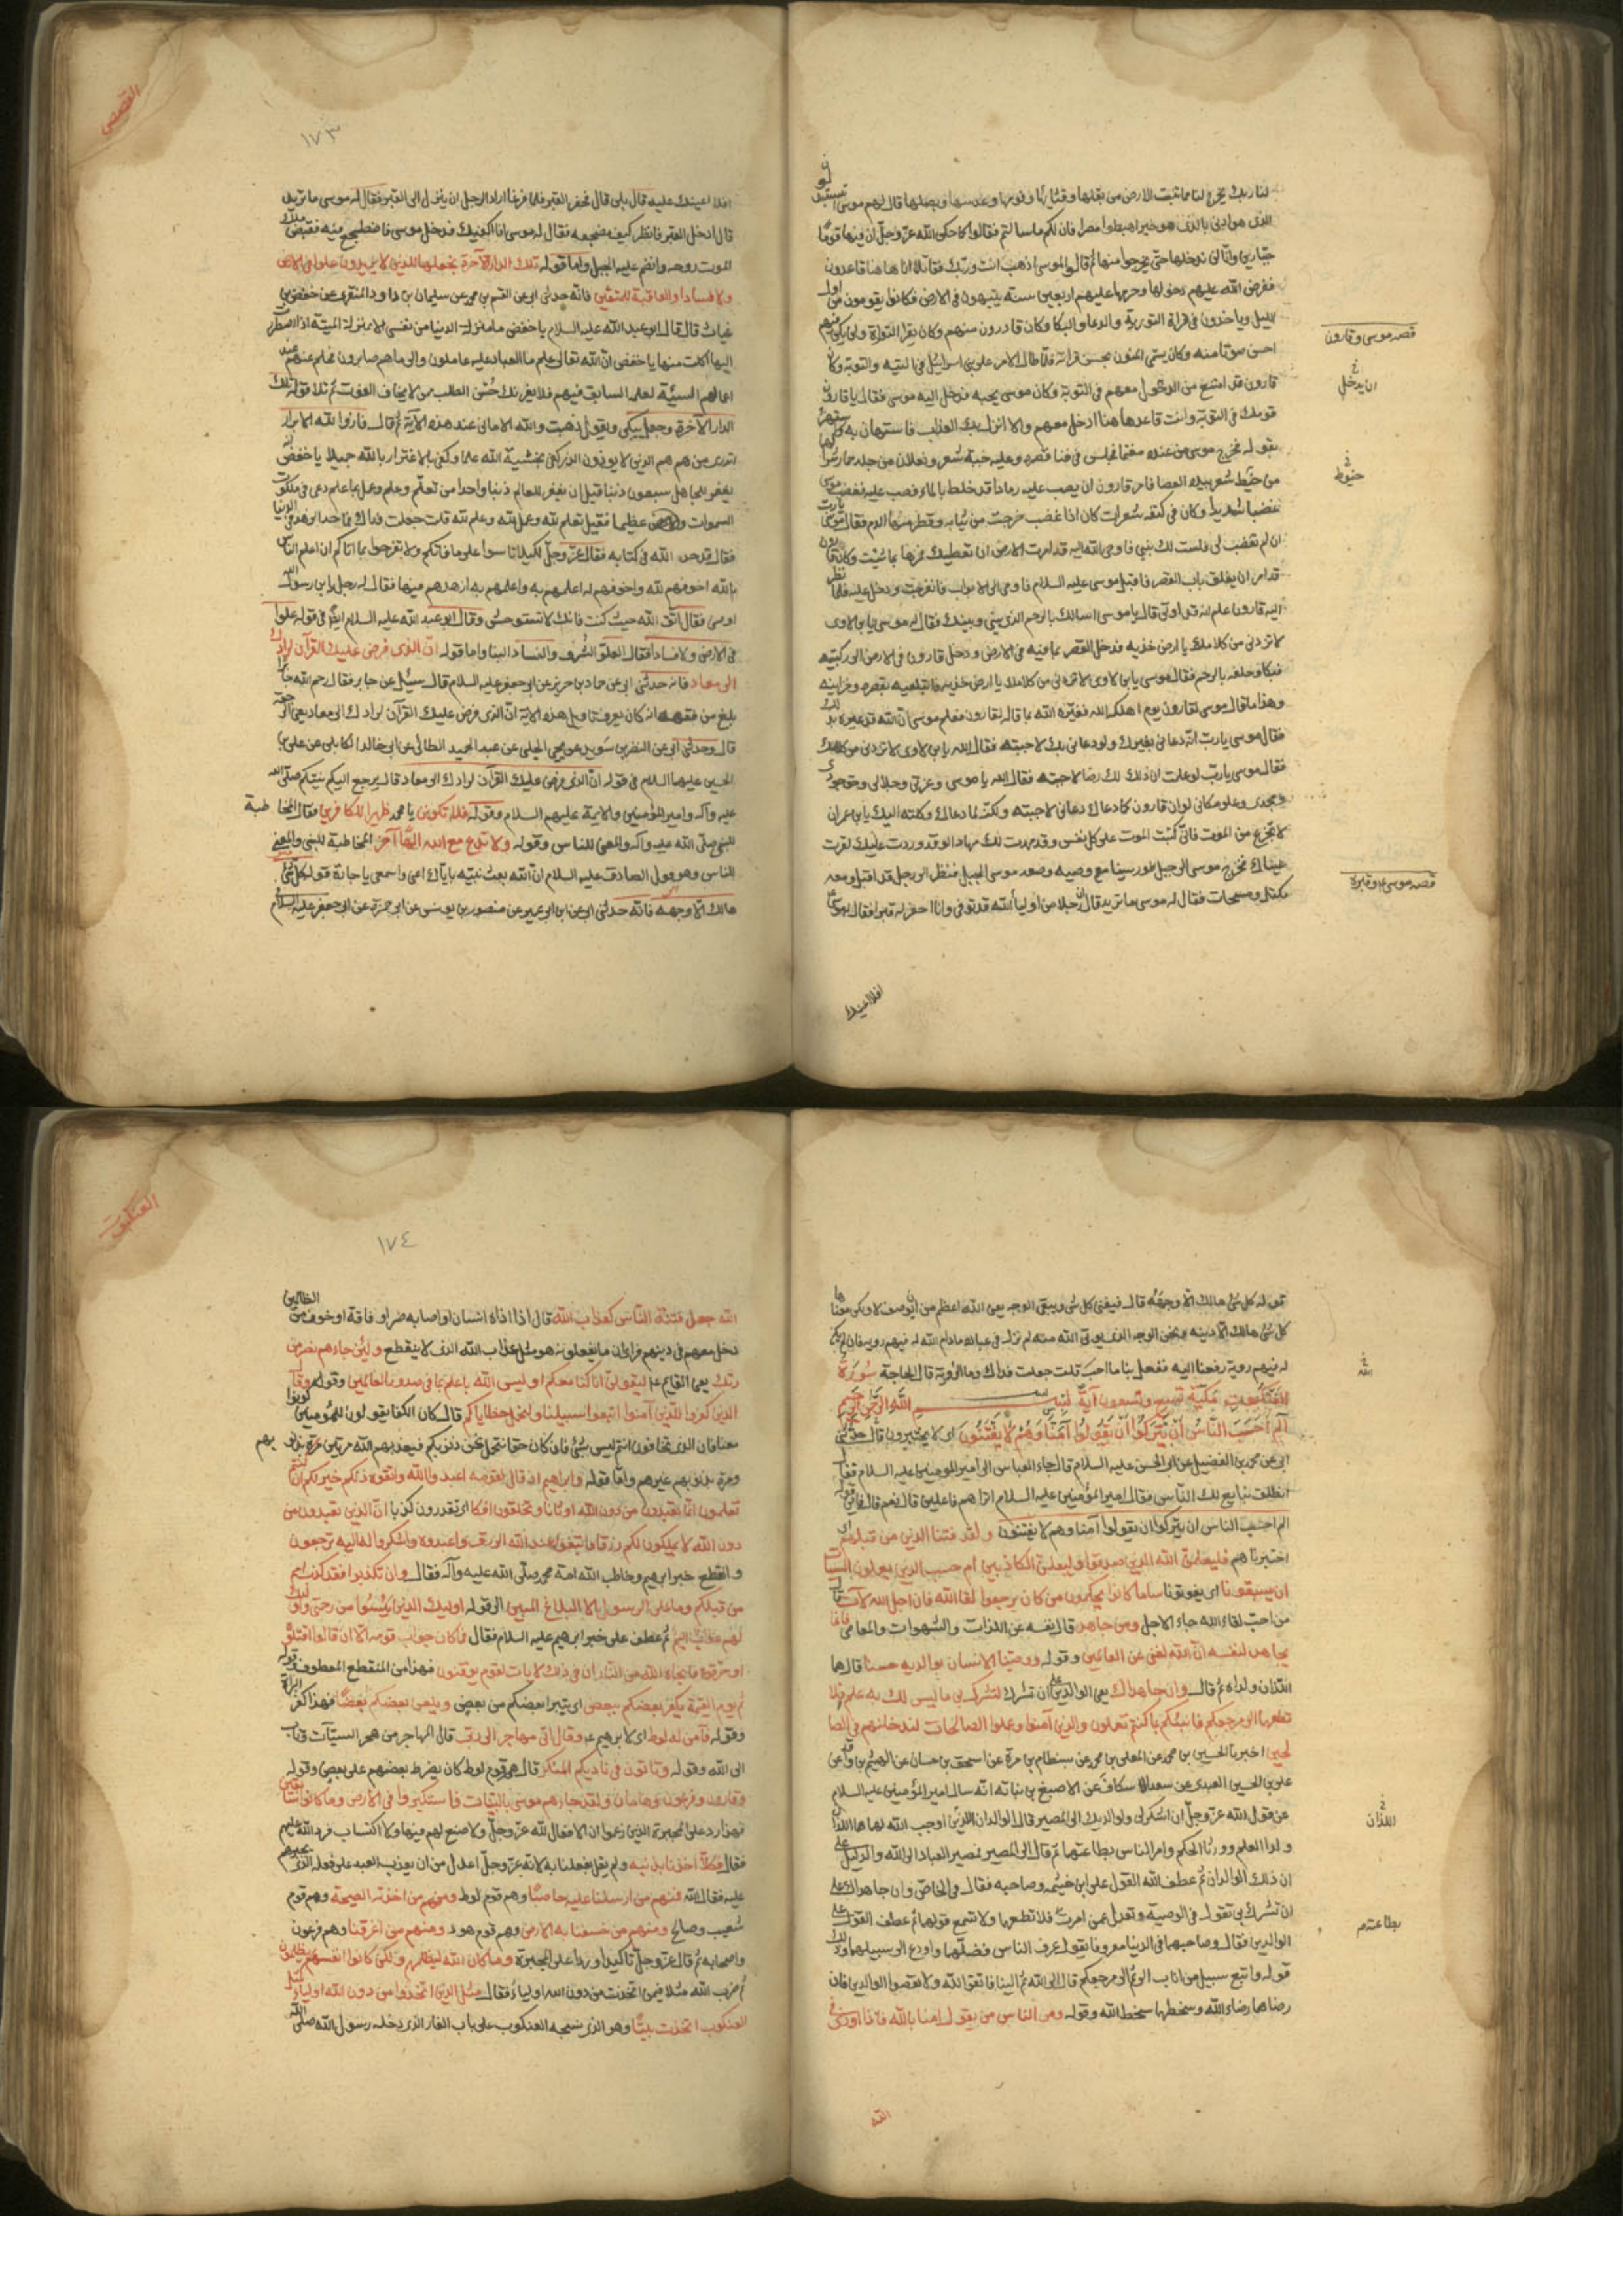 لنا ربك يخرج لنا مما تنبت الارض من بقلها وقثائها وفومها وعدسها وبصلها قال لهم موسى
الذى هو ادنى بالذى هو خير اهبطوا مصرا فان لكم ما سالتم فقالوا كما حكى الله عز وجل ان فيها قوما
جبارين وانا لن ندخلها حتى يخرجوا منها ثم قالوا لموسى اذهب انت وربك فقاتلا انا هاهنا قاعدون
ففرض الله عليهم دخولها وحرمها عليهم اربعين سنة يتيهون فى الارض فكانوا يقومون من اول
الليل وياخذون فى قراة التورية والدعا والبكا وكان قادرون منهم وكان يقرا التوراة ولم يكن فيهم
احسن صوتا منه وكان يسمى المنون بحسن قراته فلما طال الامر على بنى اسرائيل فى التيه والتوبة وكان
قارون قد امتنع من الدخول معهم فى التوبة وكان موسى يحبه فدخل اليه موسى فقال يا قارون
قومك فى التوبة وانت قاعد هاهنا ادخل معهم والا انزل بك العذاب فاستهان به
بقوله فخرج موسى من عنده مغتما فجلس فى فنا قصره وعليه جبة شعر ونعلان من جلد حمار
من خيط شعر بيده العصا فامر قارون ان يصب عليه رمادا قد خلط بالماء فصب عليه فغضب موسى
غضبا شديدا وكان فى كتفه شعرات كان اذا غضب خرجت من ثيابه وقطر منها الدم فقال موسى يا رب
ان لم تغضب لى فلست لك بنبى فاوحى الله اليه قد امرت الارض ان تعطيك فمرها بما شئت وكان قارون
قد امر ان يغلق باب القصر فاقبل موسى عليه السلام فاومى الى الابواب فانفرجت ودخل عليه فلما نظر
اليه قارون علم انه قد اوتى قال يا موسى اسالك بالرحم الذى بينى وبينك فقال له موسى يا بن لاوى
لا تزدنى من كلامك يا ارض خذيه فدخل القصر بما فيه فى الارض ودخل قارون فى الارض الى ركبتيه
فبكا وحلفه بالرحم فقال موسى يا بن لاوى لا تزدنى من كلامك يا ارض خذيه فابتلعيه بقصره وخزاينه
وهذا ما قال موسى لقارون يوم اهلكه الله فعيره الله بما قاله لقارون فعلم موسى ان الله قد عيره بذلك
فقال موسى يا رب انه دعانى بغيرك ولو دعانى بك لاجبته فقال الله يا بن لاوى لا تزدنى من كلامك
فقال موسى يا رب لو علمت ان ذلك لك رضا لاجبته فقال الله يا موسى وعزتى وجلالى وجودى
ومجدى وعلو مكانى لو ان قارون كما دعاك دعانى لاجبته ولكنه لما دعاك وكلته اليك يا بن عمران
لا تجزع من الموت فانى كتبت الموت على كل نفس وقد مهدت لك مهادا لو قد وردت عليك لقرت
عيناك فخرج موسى الى جبل طور سينا مع وصيه وصعد موسى الجبل فنظر الى رجل قد اقبل ومعه
مكتل ومسحات فقال له موسى ما تريد قال ان رجلا من اوليا الله قد توفى وانا احفر له قبرا فقال له موسى
قصه موسى وقارون
ان يدخل
خيوط
قصه موسى ع وقبره
افلا اعينك
القصص
١٧٣
افلا اعينك عليه قال بلى قال فحفر القبر فلما فرغا اراد الرجل ان ينزل الى القبر فقال له موسى ما تريد
قال ادخل القبر فانظر كيف مضجعه فقال له موسى انا اكفيك فدخل موسى فاضطجع فيه فقبض ملك
الموت روحه وانضم عليه الجبل واما قوله تلك الدار الآخرة نجعلها للذين لا يريدون علوا فى الارض
ولا فسادا والعاقبة للمتقين فانه حدثنى ابى عن القسم بن محمد عن سليمان بن داود المنقرى عن حفص بن
غياث قال قال ابو عبد الله عليه السلام يا حفص ما منزلة الدنيا من نفسى الا بمنزلة الميتة اذا اضطررت
اليها اكلت منها يا حفص ان الله تعالى علم ما العباد عليه عاملون والى ما هم صايرون فحلم عنهم عند
اعمالهم السيئة لعلمه السابق فيهم فلا يغرنك حسن الطلب ممن لا يخاف الفوت ثم تلا قوله تلك
الدار الآخرة وجعل يبكى ويقول ذهبت والله الامانى عند هذه الآية ثم قال فازوا والله الابرار
اتدرى من هم هم الذين لا يوذون الذر كفى بخشية الله علما وكفى بالاغترار بالله جهلا يا حفص
يغفر للجاهل سبعون ذنبا قبل ان يغفر للعالم ذنبا واحدا من تعلم وعلم وعمل بما علم دعى فى ملكوت
السموات عظيما فقيل تعلم لله وعمل لله وعلم لله قلت جعلت فداك فما حد الزهد فى الدنيا
فقال قد حد الله فى كتابه فقال عز وجل لكيلا تاسوا على ما فاتكم ولا تفرحوا بما اتاكم ان اعلم الناس
بالله اخوفهم لله واخوفهم له اعلمهم به واعلمهم به ازهدهم فيها فقال له رجل يا بن رسول الله
اوصنى فقال اتق الله حيث كنت فانك لا تستوحش وقال ابو عبد الله عليه السلام ايضا فى قوله علوا
فى الارض ولا فسادا فقال العلو الشرف والفساد البنا واما قوله ان الذى فرض عليك القرآن لرادك
الى معاد فانه حدثنى ابى عن حماد بن حريز عن ابى جعفر عليه السلام قال سئل عن جابر فقال رحم الله جابرا
بلغ من فقهه انه كان يعرف تاويل هذه الاية ان الذى فرض عليك القرآن لرادك الى معاد يعنى الرجعة
قال وحدثنى ابى عن النضر بن سويد عن يحيى الحلبى عن عبد الحميد الطائى عن ابى خالد الكابلى عن على بن
الحسين عليهما السلام فى قوله ان الذى فرض عليك القرآن لرادك الى معاد قال يرجع اليكم نبيكم صلى الله
عليه وآله وامير المؤمنين والايمة عليهم السلام وقوله فلا تكونن يا محمد ظهيرا للكافرين فقال المخاطبة
للنبى صلى الله عليه وآله والمعنى للناس وقوله ولا تدع مع الله الها آخر المخاطبة للنبى والمعنى
للناس وهو قول الصادق عليه السلام ان الله بعث نبيه باياك اعنى واسمعى يا جارة قوله كل شئ
هالك الا وجهه فانه حدثنى ابى عن ابن ابى عمير عن منصور بن يونس عن ابى حمزة عن ابى جعفر عليه السلام
قوله كل شئ هالك الا وجهه قال فيفنى كل شئ ويبقى الوجه يعنى الله اعظم من ان يوصف لا ولكن معناها
كل شئ هالك الا دينه ونحن الوجه الذى يوتى الله منه لم نزل فى عباده ما دام الله له فيهم روية فان لم يكن
له فيهم روية رفعنا اليه ففعل بنا ما احب قلت جعلت فداك وما الروية قال الحاجة سورة
العنكبوت مكية تسع وتسعون آية بسم الله الرحمن الرحيم
آلم احسب الناس ان يتركوا ان يقولوا آمنا وهم لا يفتنون اى لا يختبرون قال حدثنى
ابى عن محمد بن الفضيل عن ابى الحسن عليه السلام قال جاء العباس الى امير المومنين عليه السلام فقال
انطلق نبايع لك الناس فقال امير المؤمنين عليه السلام اتراهم فاعلين قال نعم قال فاين قوله
الم احسب الناس ان يتركوا ان يقولوا آمنا وهم لا يفتنون ولقد فتنا الذين من قبلهم اى
اختبرناهم فليعلمن الله الذين صدقوا وليعلمن الكاذبين ام حسب الذين يعملون السيئات
ان يسبقونا اى يفوتونا ساء ما كانوا يحكمون من كان يرجوا لقا الله فان اجل الله لآت قال
من احب لقاء الله جاء الاجل ومن جاهد قال نفسه عن اللذات والشهوات والمعاصى فانما
يجاهد لنفسه ان الله لغنى عن العالمين وقوله ووصينا الانسان بوالديه حسنا قال هما
اللذان ولداه ثم قال وان جاهداك يعنى الوالدين على ان تشرك لتشرك بى ما ليس لك به علم فلا
تطعهما الى مرجعكم فانبئكم بما كنتم تعملون والذين آمنوا وعملوا الصالحات لندخلنهم فى الصا
لحين اخبرنا الحسين بن محمد عن المعلى بن محمد عن بسطام بن مرة عن اسحق بن حسان عن الهيثم بن واقد عن
على بن الحسين العبدى عن سعد الاسكاف عن الاصبغ بن نباته انه سال امير المؤمنين عليه السلام
عن قول الله عز وجل ان اشكر لى ولوالديك الى المصير قال الوالدان اللذين اوجب الله لهما هما اللذان
ولدا العلم وورثا الحكم وامر الناس بطاعتهما ثم قال الى المصير فمصير العباد الى الله والدليل على
ان ذلك الوالدان ثم عطف الله القول على ابن خيثمه وصاحبه فقال فى الخاص وان جاهداك على
ان تشرك بى تقول فى الوصية وتعدل عمن امرت فلا تطعهما ولا تسمع قولهما ثم عطف القول على
الوالدين فقال وصاحبهما فى الدنيا معروفا يقول عرف الناس فضلهما وادع الى سبيلهما وذلك
قوله واتبع سبيل من اناب الى ثم الى مرجعكم قال الى الله ثم الينا فاتقوا الله ولا تعصوا الوالدين فان
رضاهما رضاء الله وسخطهما سخط الله وقوله ومن الناس من يقول امنا بالله فاذا اوذى فى
الله
اللذان
بطاعتهم
الله
العنكبوت
١٧٤
الله جعل فتنة الناس كعذاب الله قال اذا اذاه انسان او اصابه ضر او فاقة او خوف من الظالمين
دخل معهم فى دينهم فراى ان ما يفعلونه هو مثل عذاب الله الذى لا ينقطع ولئن جاءهم نصر من
ربك يعنى القايم ع ليقولن انا كنا معكم او ليس الله باعلم بما فى صدور العالمين وقوله وقال
الذين كفروا للذين آمنوا اتبعوا سبيلنا ولنحمل خطاياكم قال كان الكفار يقولون للمؤمنين كونوا
معنا فان الذى تخافون انتم ليس بشئ فان كان حقا نتحمل نحن ذنوبكم فيعذبهم الله مرتين مرة بذنوبهم
ومرة بذنوب غيرهم واما قوله وابراهيم اذ قال لقومه اعبدوا الله واتقوه ذلكم خير لكم ان كنتم
تعلمون انما تعبدون من دون الله اوثانا وتخلقون افكا اى تقدرون كذبا ان الذين تعبدون من
دون الله لا يملكون لكم رزقا فابتغوا عند الله الرزق واعبدوه واشكروا له اليه ترجعون
وانقطع خبر ابرهيم وخاطب الله امة محمد صلى الله عليه وآله فقال وان تكذبوا فقد كذب امم
من قبلكم وما على الرسول الا البلاغ المبين الى قوله اوليك الذين يئسوا من رحمتى واوليك
لهم عذاب اليم ثم عطف على خبر ابرهيم عليه السلام فقال فما كان جواب قومه الا ان قالوا اقتلوه
او حرقوه فانجاه الله من النار ان فى ذلك لآيات لقوم يوقنون فهذا من المنقطع المعطوف قوله
ثم يوم القيمة يكفر بعضكم ببعض اى يتبرا بعضكم من بعض ويلعن بعضكم بعضا فهذا كفر البراة
وقوله فآمن له لوط اى لابرهيم ع وقال انى مهاجر الى ربى قال المهاجر من هجر السيآت وتاب
الى الله وقوله وتاتون فى ناديكم المنكر قال هم قوم لوط كان يضرط بعضهم على بعض وقوله
وقارون وفرعون وهامان ولقد جاءهم موسى بالبينات فاستكبروا فى الارض وما كانوا سابقين
فهذا رد على المجبرة الذين زعموا ان الافعال لله عز وجل ولا صنع لهم فيها ولا اكتساب فرد الله عليهم
فقال فكلا اخذنا بذنبه ولم يقل بفعلنا به لانه عز وجل اعدل من ان يعذب العبد على فعله الذى يجبرهم
عليه فقال الله فمنهم من ارسلنا عليه حاصبا وهم قوم لوط ومنهم من اخذته الصيحة وهم قوم
شعيب وصالح ومنهم من خسفنا به الارض وهم قوم هود ومنهم من اغرقنا وهم فرعون
واصحابه ثم قال عز وجل تاكيدا وردا على المجبرة وما كان الله ليظلمهم ولكن كانوا انفسهم يظلمون
ثم ضرب الله مثلا فيمن اتخذت من دون الله اولياء فقال مثل الذين اتخذوا من دون الله اولياء كمثل
العنكبوت اتخذت بيتا وهو الذى نسجه العنكبوت على باب الغار الذى دخله رسول الله صلى الله